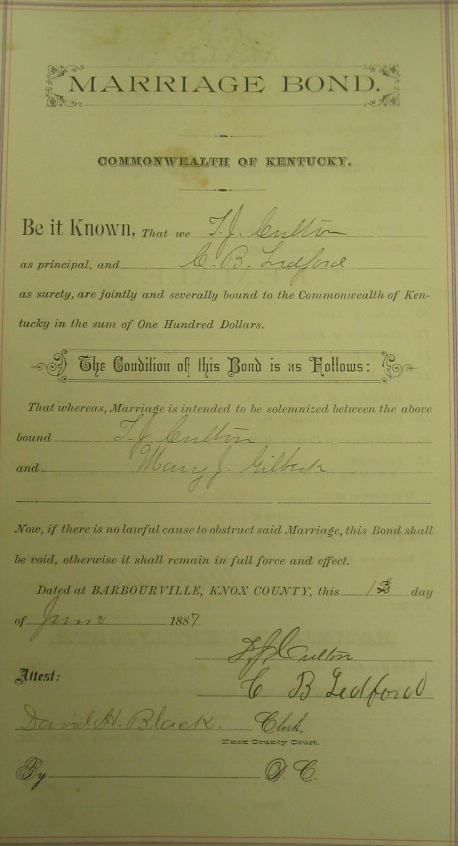 MARRIAGE BOND.
COMMONWEALTH OF KENTUCKY.
Be it Known, That we T. J. Culton
as principal, and C. B. Ledford
as surety, are jointly and severally bound to the Commonwealth of Ken-
tucky in the sum of One Hundred Dollars.
The Condition of this Bond is as Follows:
That whereas, Marriage is intended to be solemnized between the above
bound T. J. Culton
and Mary J. Gilbert
Now, if there is no lawful cause to obstruct said Marriage, this Bond shall
be void, otherwise it shall remain in full force and effect.
Dated at BARBOURVILLE, KNOX COUNTY, this day
of June 1887
T. J. Culton
Attest:
C B Ledford
David H. Black. Clerk,
Knox County Court.
By D. C.